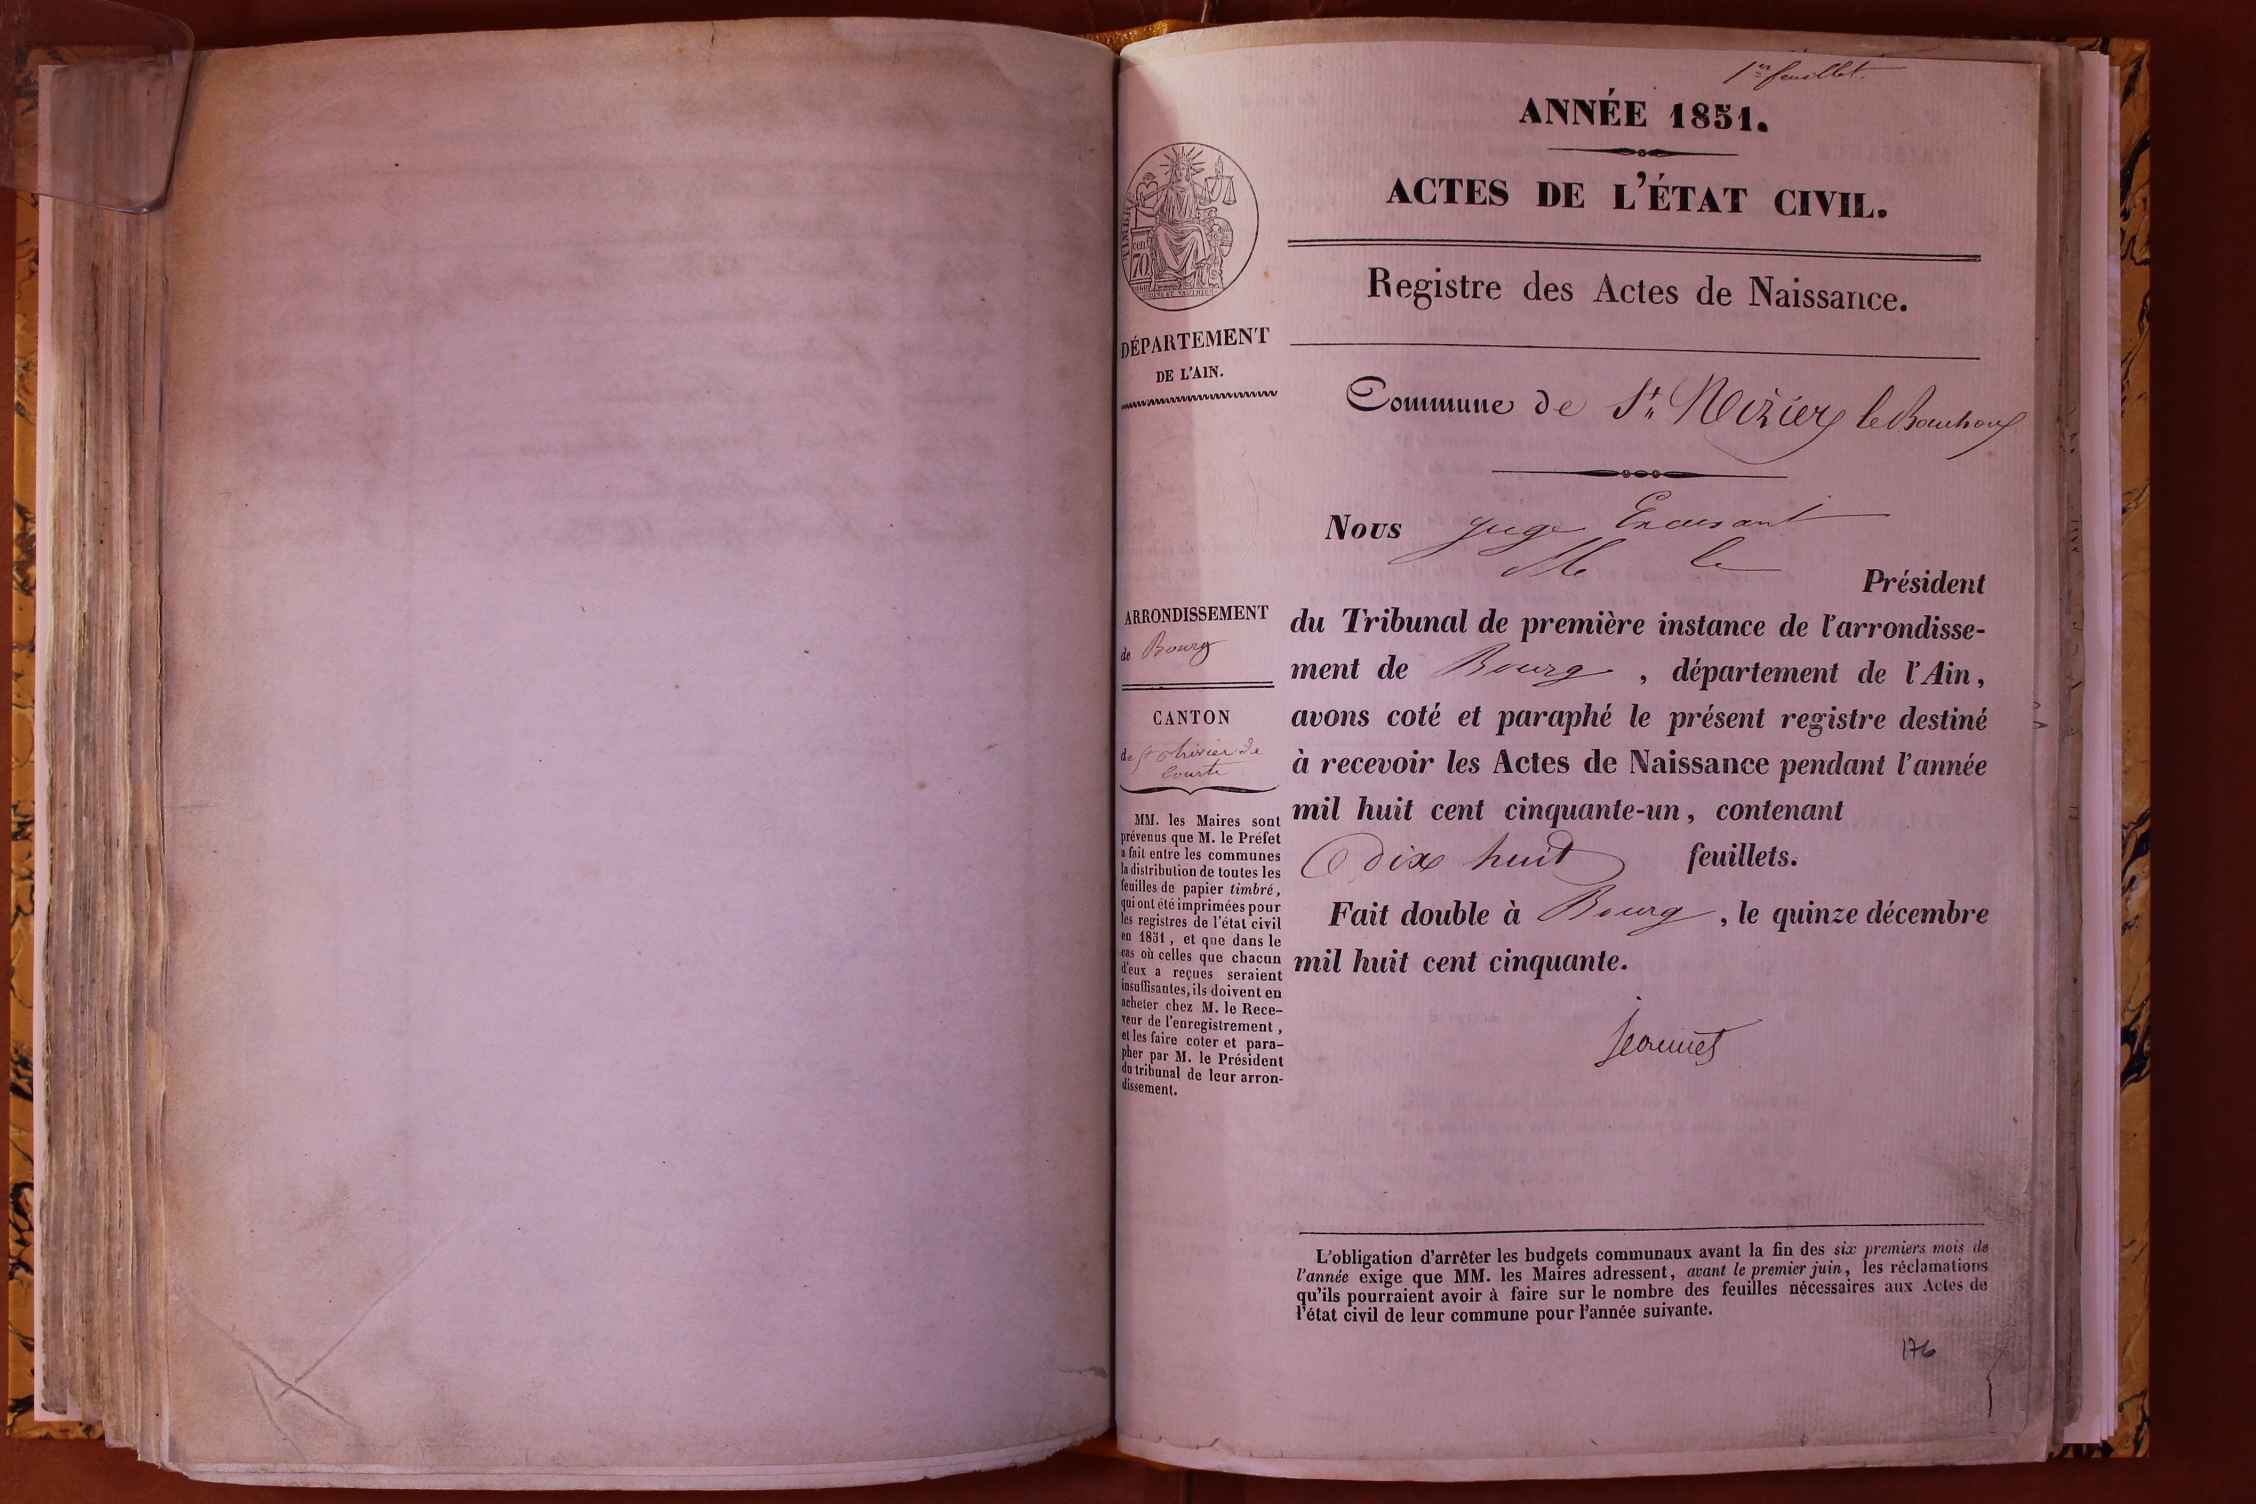 1er feuillet.
ANNÉE 1851.
ACTES DE L'ÉTAT CIVIL.
Registre des Actes de Naissance.
TIMBRE
cent.
70
DÉPARTEMENT
DE L'AIN.
Commune de St Nizier le Bouchoux
Nous juge
Mr le
Président
du Tribunal de première instance de l'arrondisse-
ment de Bourg, département de l'Ain,
avons coté et paraphé le présent registre destiné
à recevoir les Actes de Naissance pendant l'année
mil huit cent cinquante-un, contenant
dix huit feuillets.
Fait double à Bourg, le quinze décembre
mil huit cent cinquante.
Jeannet
ARRONDISSEMENT
de Bourg
CANTON
de St Trivier de
Courte
MM. les Maires sont
prévenus que M. le Préfet
a fait entre les communes
la distribution de toutes les
feuilles de papier timbré,
qui ont été imprimées pour
les registres de l'état civil
en 1851, et que dans le
cas où celles que chacun
d'eux a reçues seraient
insuffisantes, ils doivent en
acheter chez M. le Rece-
veur de l'enregistrement,
et les faire coter et para-
pher par M. le Président
du tribunal de leur arron-
dissement.
L'obligation d'arrêter les budgets communaux avant la fin des six premiers mois de
l'année exige que MM. les Maires adressent, avant le premier juin, les réclamations
qu'ils pourraient avoir à faire sur le nombre des feuilles nécessaires aux Actes de
l'état civil de leur commune pour l'année suivante.
176